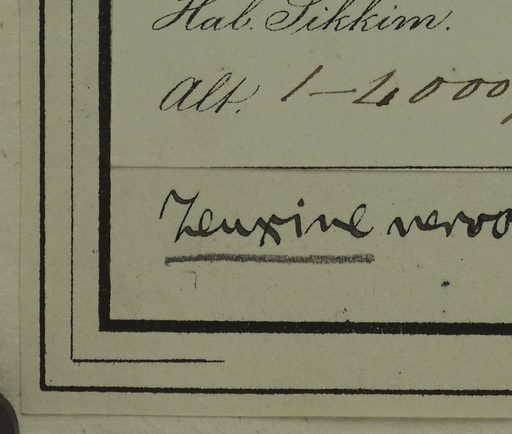 Hab. Sikkim.
Alt. 1-4000
Zeuxine nervo